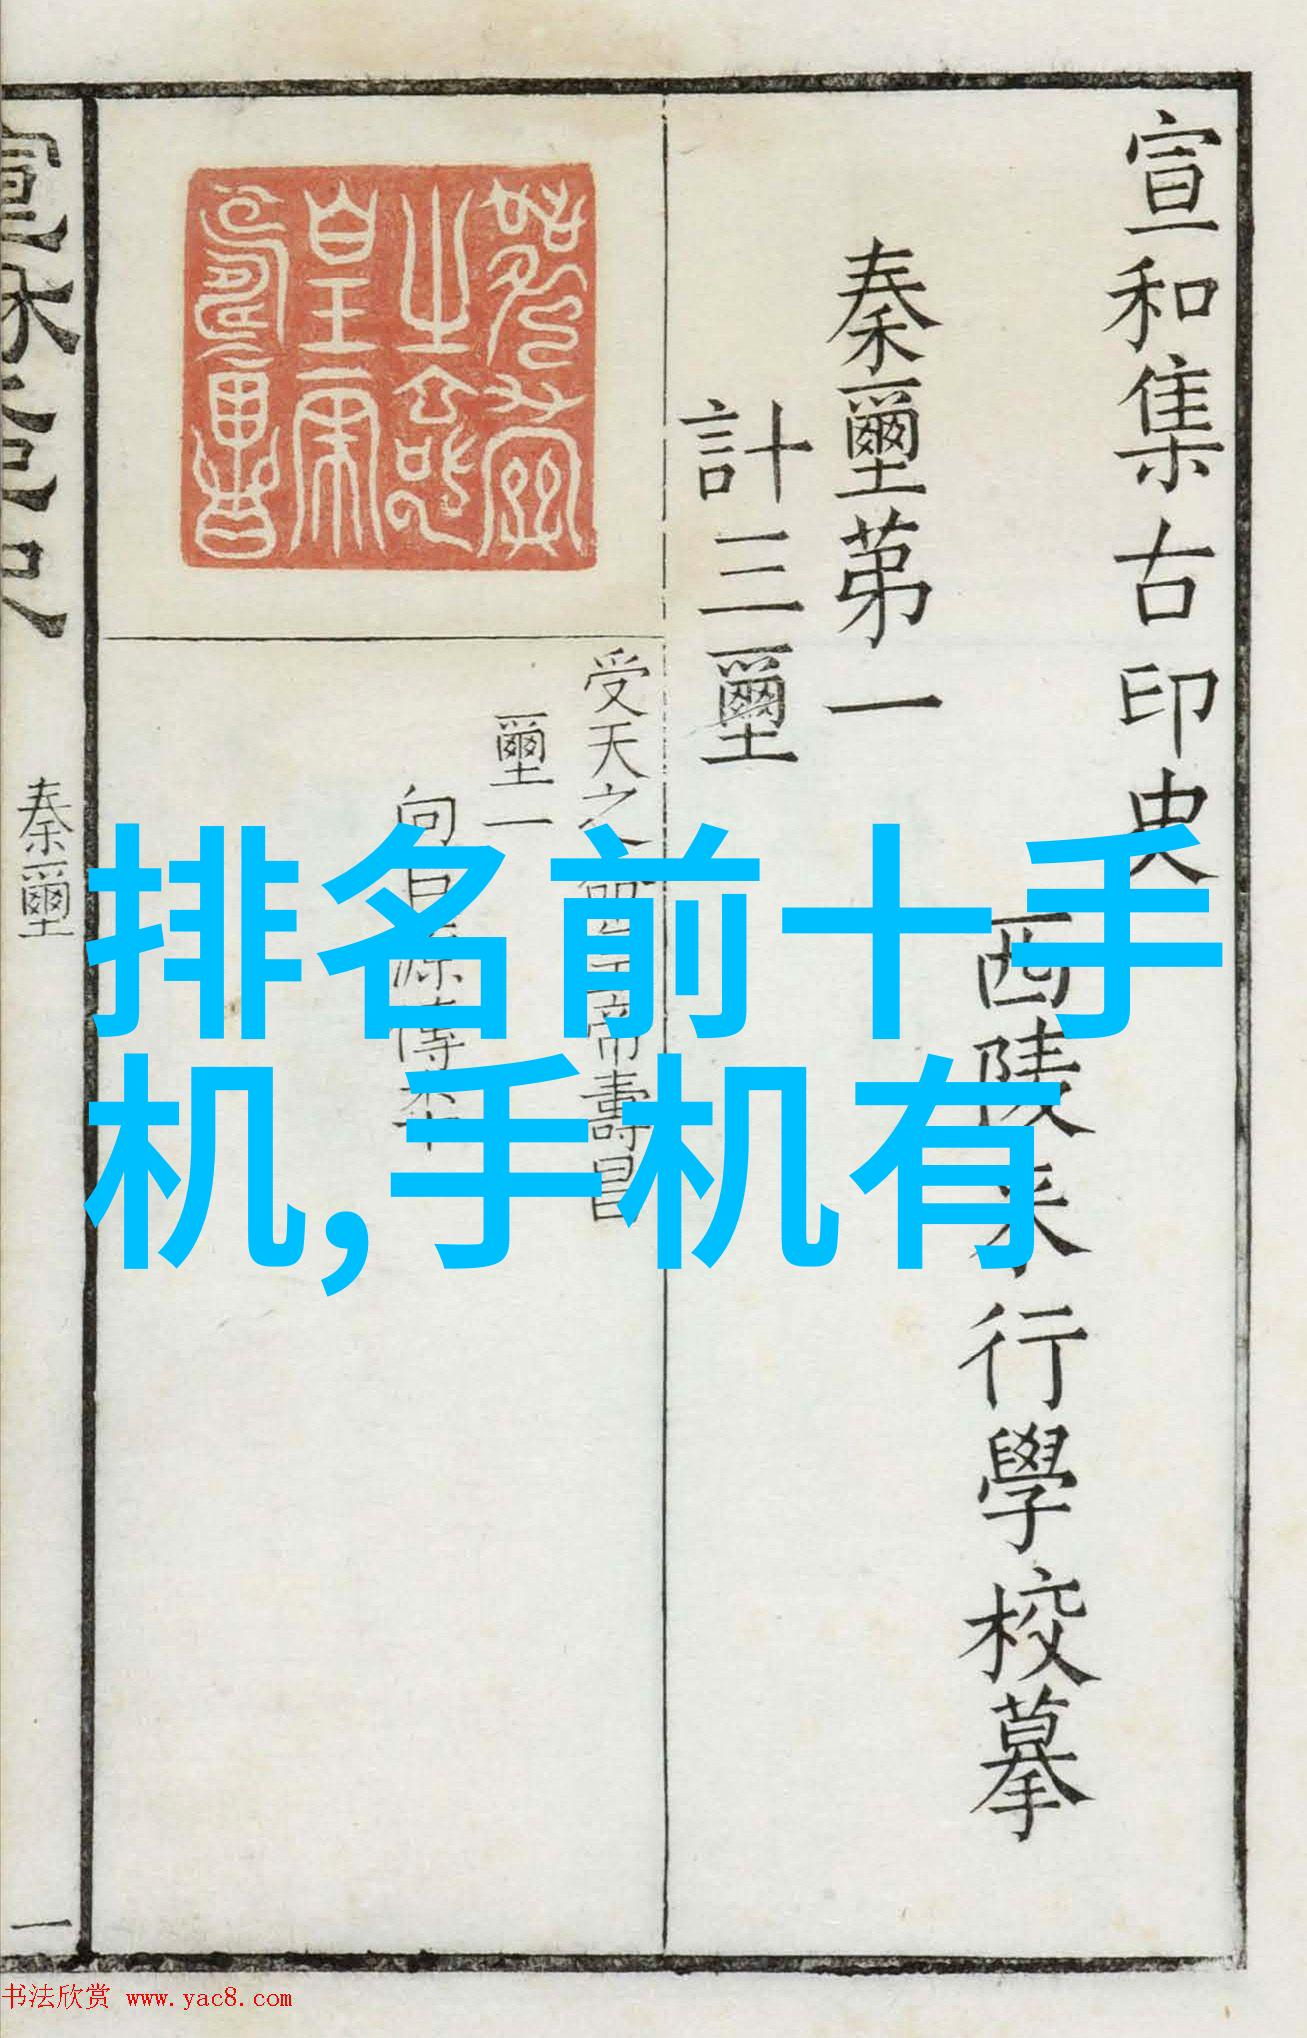 宣和集古印史
西陵来行學校摹
秦璽第一
計三璽
受天之命皇帝壽昌
璽一
向巨源傳本
秦璽
一
排名前十手
机,手机有
书法欣赏 www.yac8.com